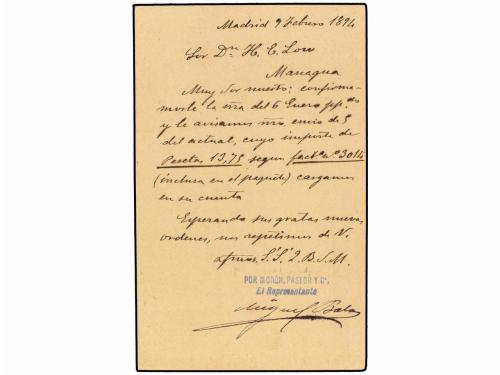 Madrid 9 Febrero 1894
Sor. Dn. H. E. Low
Managua
Muy Sor nuestro: confirma-
mosle la nra del 6 Enero ppdo
y le avisamos nro. envio de 5
del actual, cuyo importe de
Pesetas 13,75 segun fact.a n.o 3014
(inclusa en el paquete) cargamos
en su cuenta
Esperando sus gratas nuevas
ordenes, nos repetimos de V.
afmos. S.S. Q.B.S.M.
POR MORÓN, PASTOR Y Cª.
El Representante
Miguel